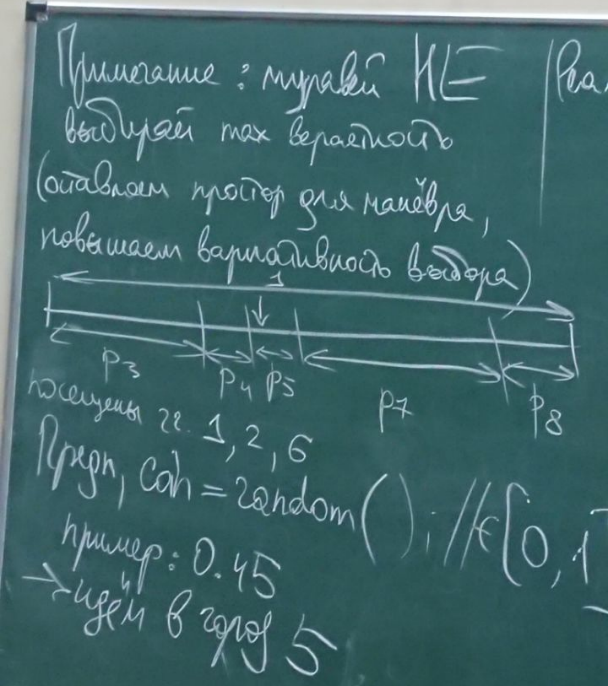 Примечание: муравей НЕ
выбирай max вероятность
(оставляем простор для манёвра,
повышаем вариативность выбора)
1
p3 p4 p5 p7 p8
посещены гг. 1, 2, 6
Предп, com = random(); //∈[0, 1]
пример: 0.45
→ идём в город 5
Реа